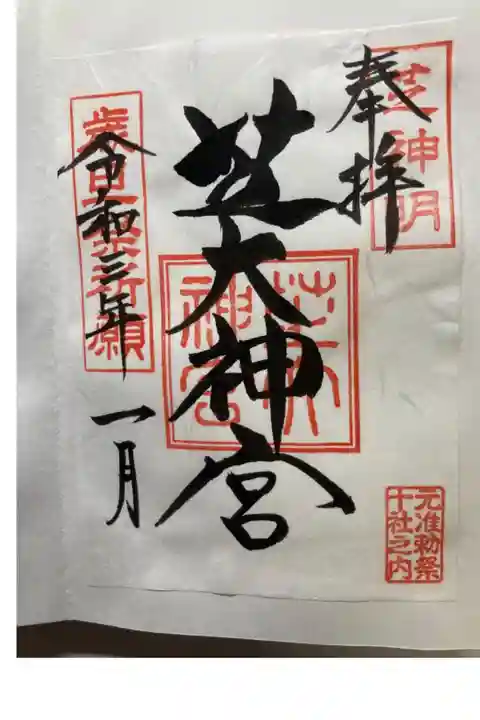 奉拝
芝神明
芝大神宮
令和三年
一月
元准勅祭
十社之内